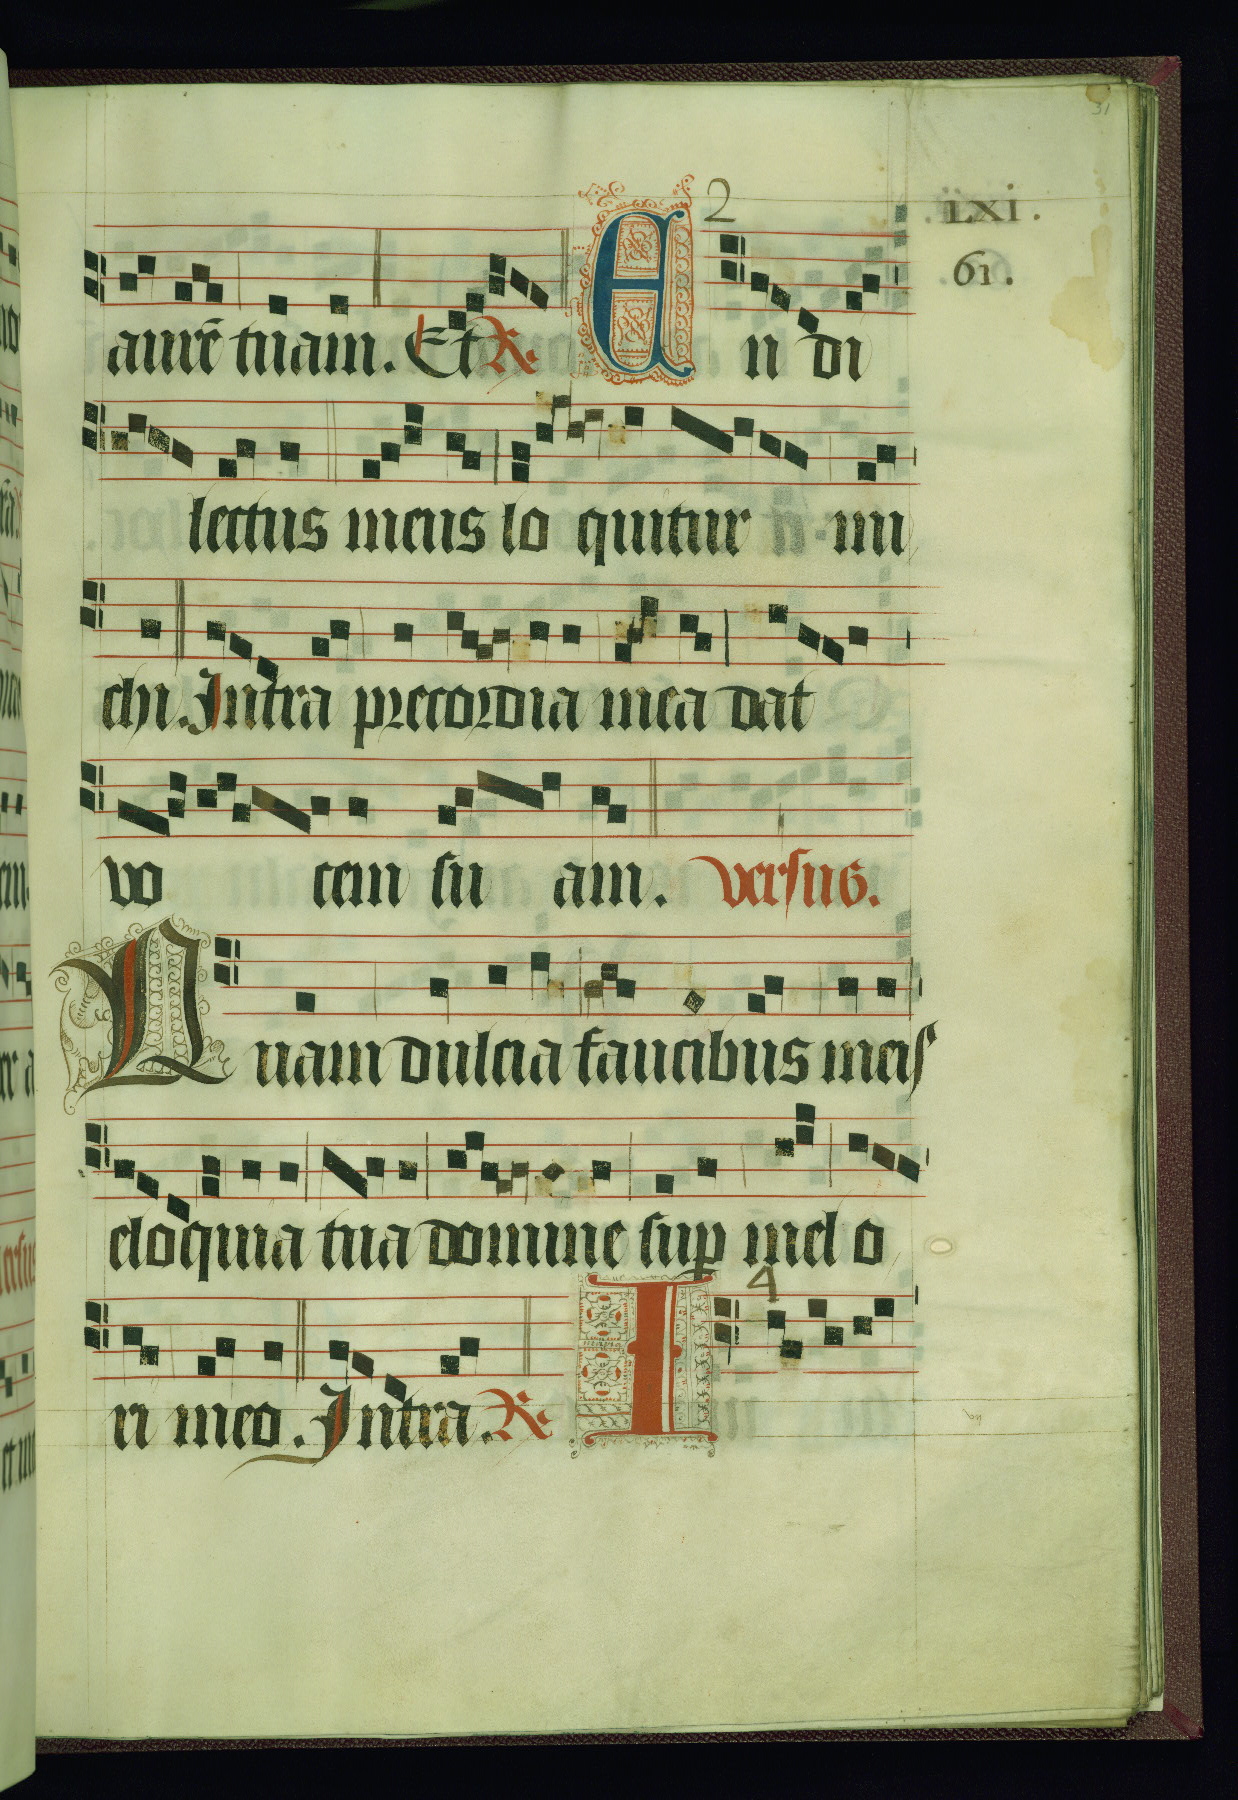 31
2
.LXI.
61.
aurē tuam. Et ℞. A u di
lectus meus lo quitur · mi
chi. Intra precordia mea dat
vo cem su am. versus.
Quam dulcia faucibus meis
eloquia tua domine suꝑ mel o
4
ri meo. Intra. ℞. I